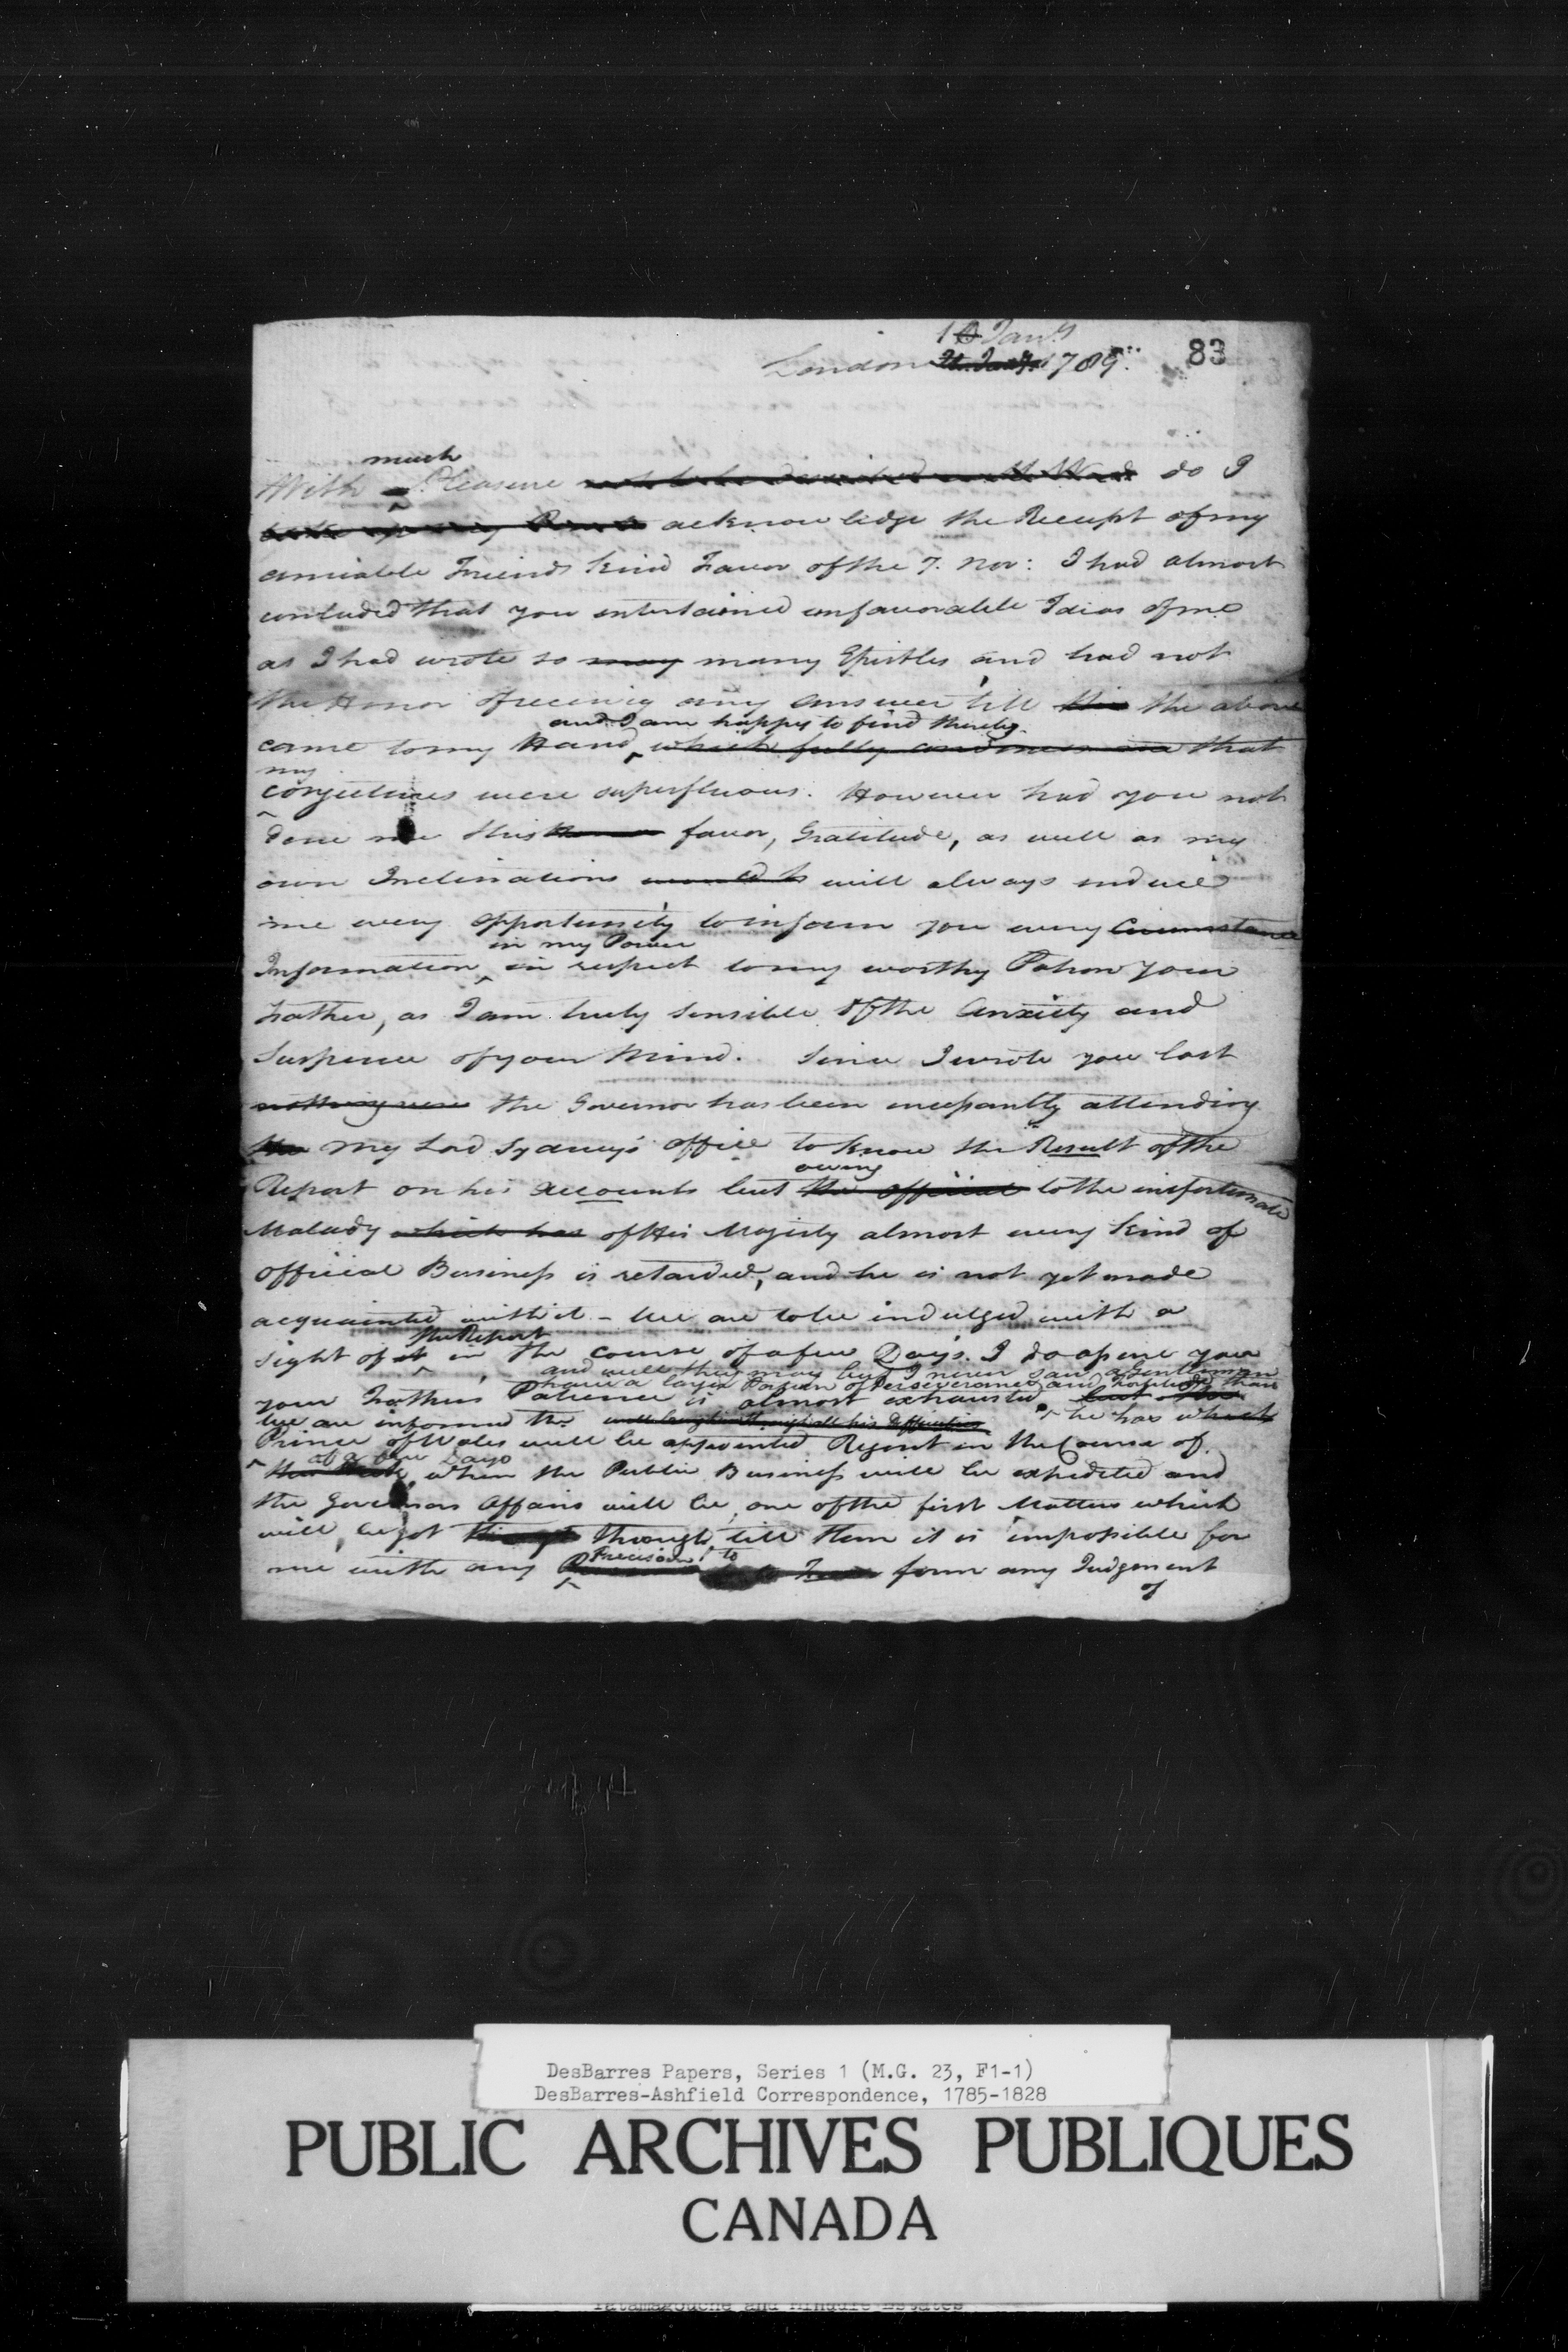 10 Jany
London 1789.
83
much
With Pleasure do I
acknowledge the Receipt of my
amiable Friends kind Favor of the 7. Nov: I had almost
concluded that you entertained unfavorable Ideas of me
as I had wrote so may many Epistles and had not
the Honor of receivig any answer till this the above
and I am happy to find thereby
came to my Hand, which fully convinces me that
my
conjectures were superfluous. However had you not
done me this Honor favor, Gratitude, as well as my
own Inclinations would will always induce
me every opportunity to inform you every Circumstance
in my Power
Information in respect to my worthy Patron your
Father, as I am truly sensible of the Anxiety and
Suspence of your Mind. Since I wrote you last
nothing new the Governor has been incessantly attending
the my Lord Sydney's office to know the Result of the
owing
Report on his accounts but the official to the unfortunate
Malady which has of His Majesty almost every kind of
official Business is retarded, and he is not yet made
acquainted with it - We are to be indulged with a
the Report
sight of it in the course of a few Days. I do assure you
and well they may but I never saw a Gentleman
have a larger Portion of Perseverance and Fortitude than
your Fathers Patience is almost exhausted but
he has which
We are informed the
Prince of Wales will be appointed Regent in the Course of
of a few Days
this Week, when the Public Business will be expedited and
the Governors Affairs will be one of the first Matters which
will be got through through, till then it is impossible for
Precision to
me with any form any Judgement
of
DesBarres Papers, Series 1 (M.G. 23, F1-1)
DesBarres-Ashfield Correspondence, 1785-1828
PUBLIC ARCHIVES PUBLIQUES
CANADA
Tatamagouche and Minudie Estates